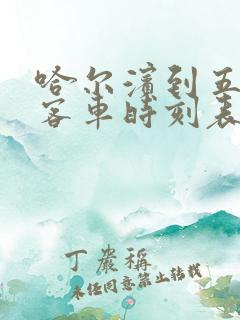 哈尔滨到五
客车时刻表
丁岩稱
未经同意禁止转载